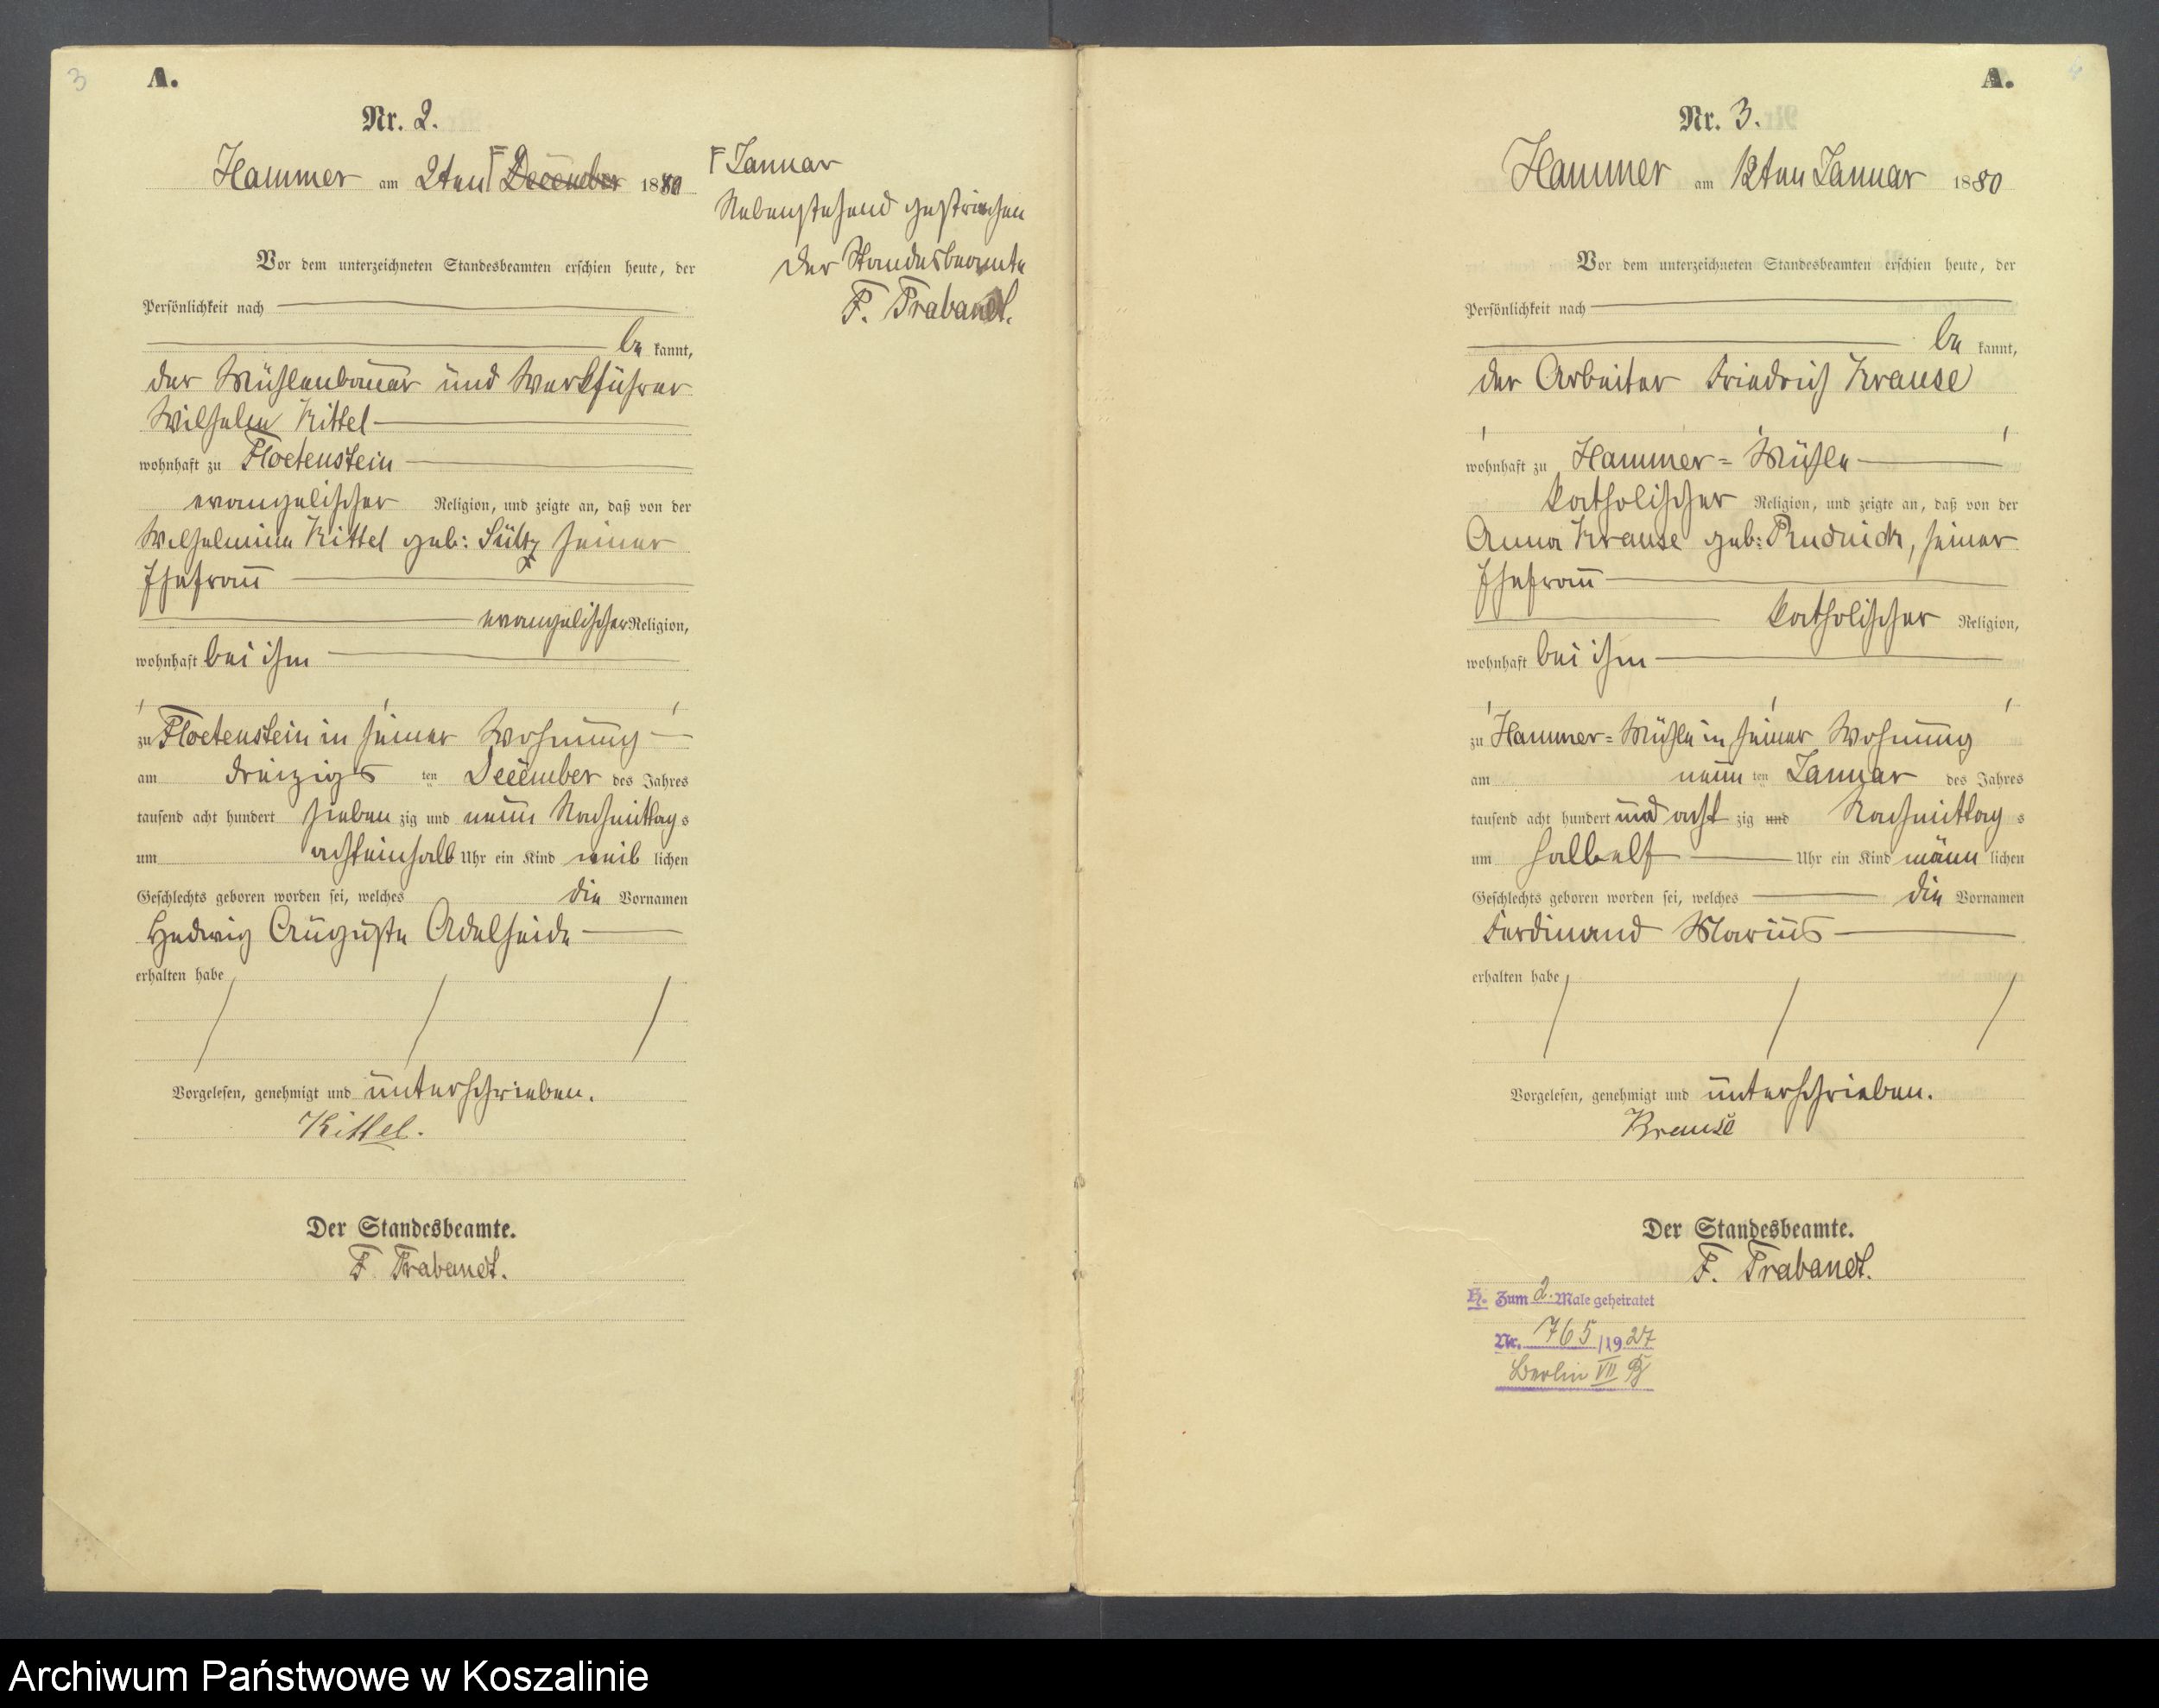 3
A.
Nr. 2.
Hammer am 2ten ⌈ December 1880
⌈ Januar
Nebenstehend gestrichen
Der Standesbeamte
F. Trabandt.
Vor dem unterzeichneten Standesbeamten erschien heute, der
Persönlichkeit nach
be kannt,
der Mühlenbauer und Werkführer
Wilhelm Kittel
wohnhaft zu Floetenstein
evangelischer Religion, und zeigte an, daß von der
Wilhelmine Kittel geb: seiner
Ehefrau
evangelischer Religion,
wohnhaft bei ihm
zu Floetenstein in seiner Wohnung
am dreizigs ten December des Jahres
tausend acht hundert sieben zig und neun Nachmittag s
um achteinhalb Uhr ein Kind weib lichen
Geschlechts geboren worden sei, welches die Vornamen
Hedwig Auguste Adelheide
erhalten habe
Vorgelesen, genehmigt und unterschrieben.
Kittel.
Der Standesbeamte.
F. Trabandt.
A.
Nr. 3.
Hammer am 12ten Januar 1880
Vor dem unterzeichneten Standesbeamten erschien heute, der
Persönlichkeit nach
be kannt,
der Arbeiter Friedrich Krause
wohnhaft zu Hammer=Mühle
katholischer Religion, und zeigte an, daß von der
Anna Krause geb: Rudnick, seiner
Ehefrau
katholischer Religion,
wohnhaft bei ihm
zu Hammer=Mühle in seiner Wohnung
am neun ten Januar des Jahres
tausend acht hundert und acht zig und Nachmittag s
um halbelf Uhr ein Kind männ lichen
Geschlechts geboren worden sei, welches die Vornamen
Ferdinand Marius
erhalten habe
Vorgelesen, genehmigt und unterschrieben.
Krause
Der Standesbeamte.
F. Trabandt.
H. Zum 2. Male geheiratet
Nr. 765/1927
Berlin VII
Archiwum Państwowe w Koszalinie